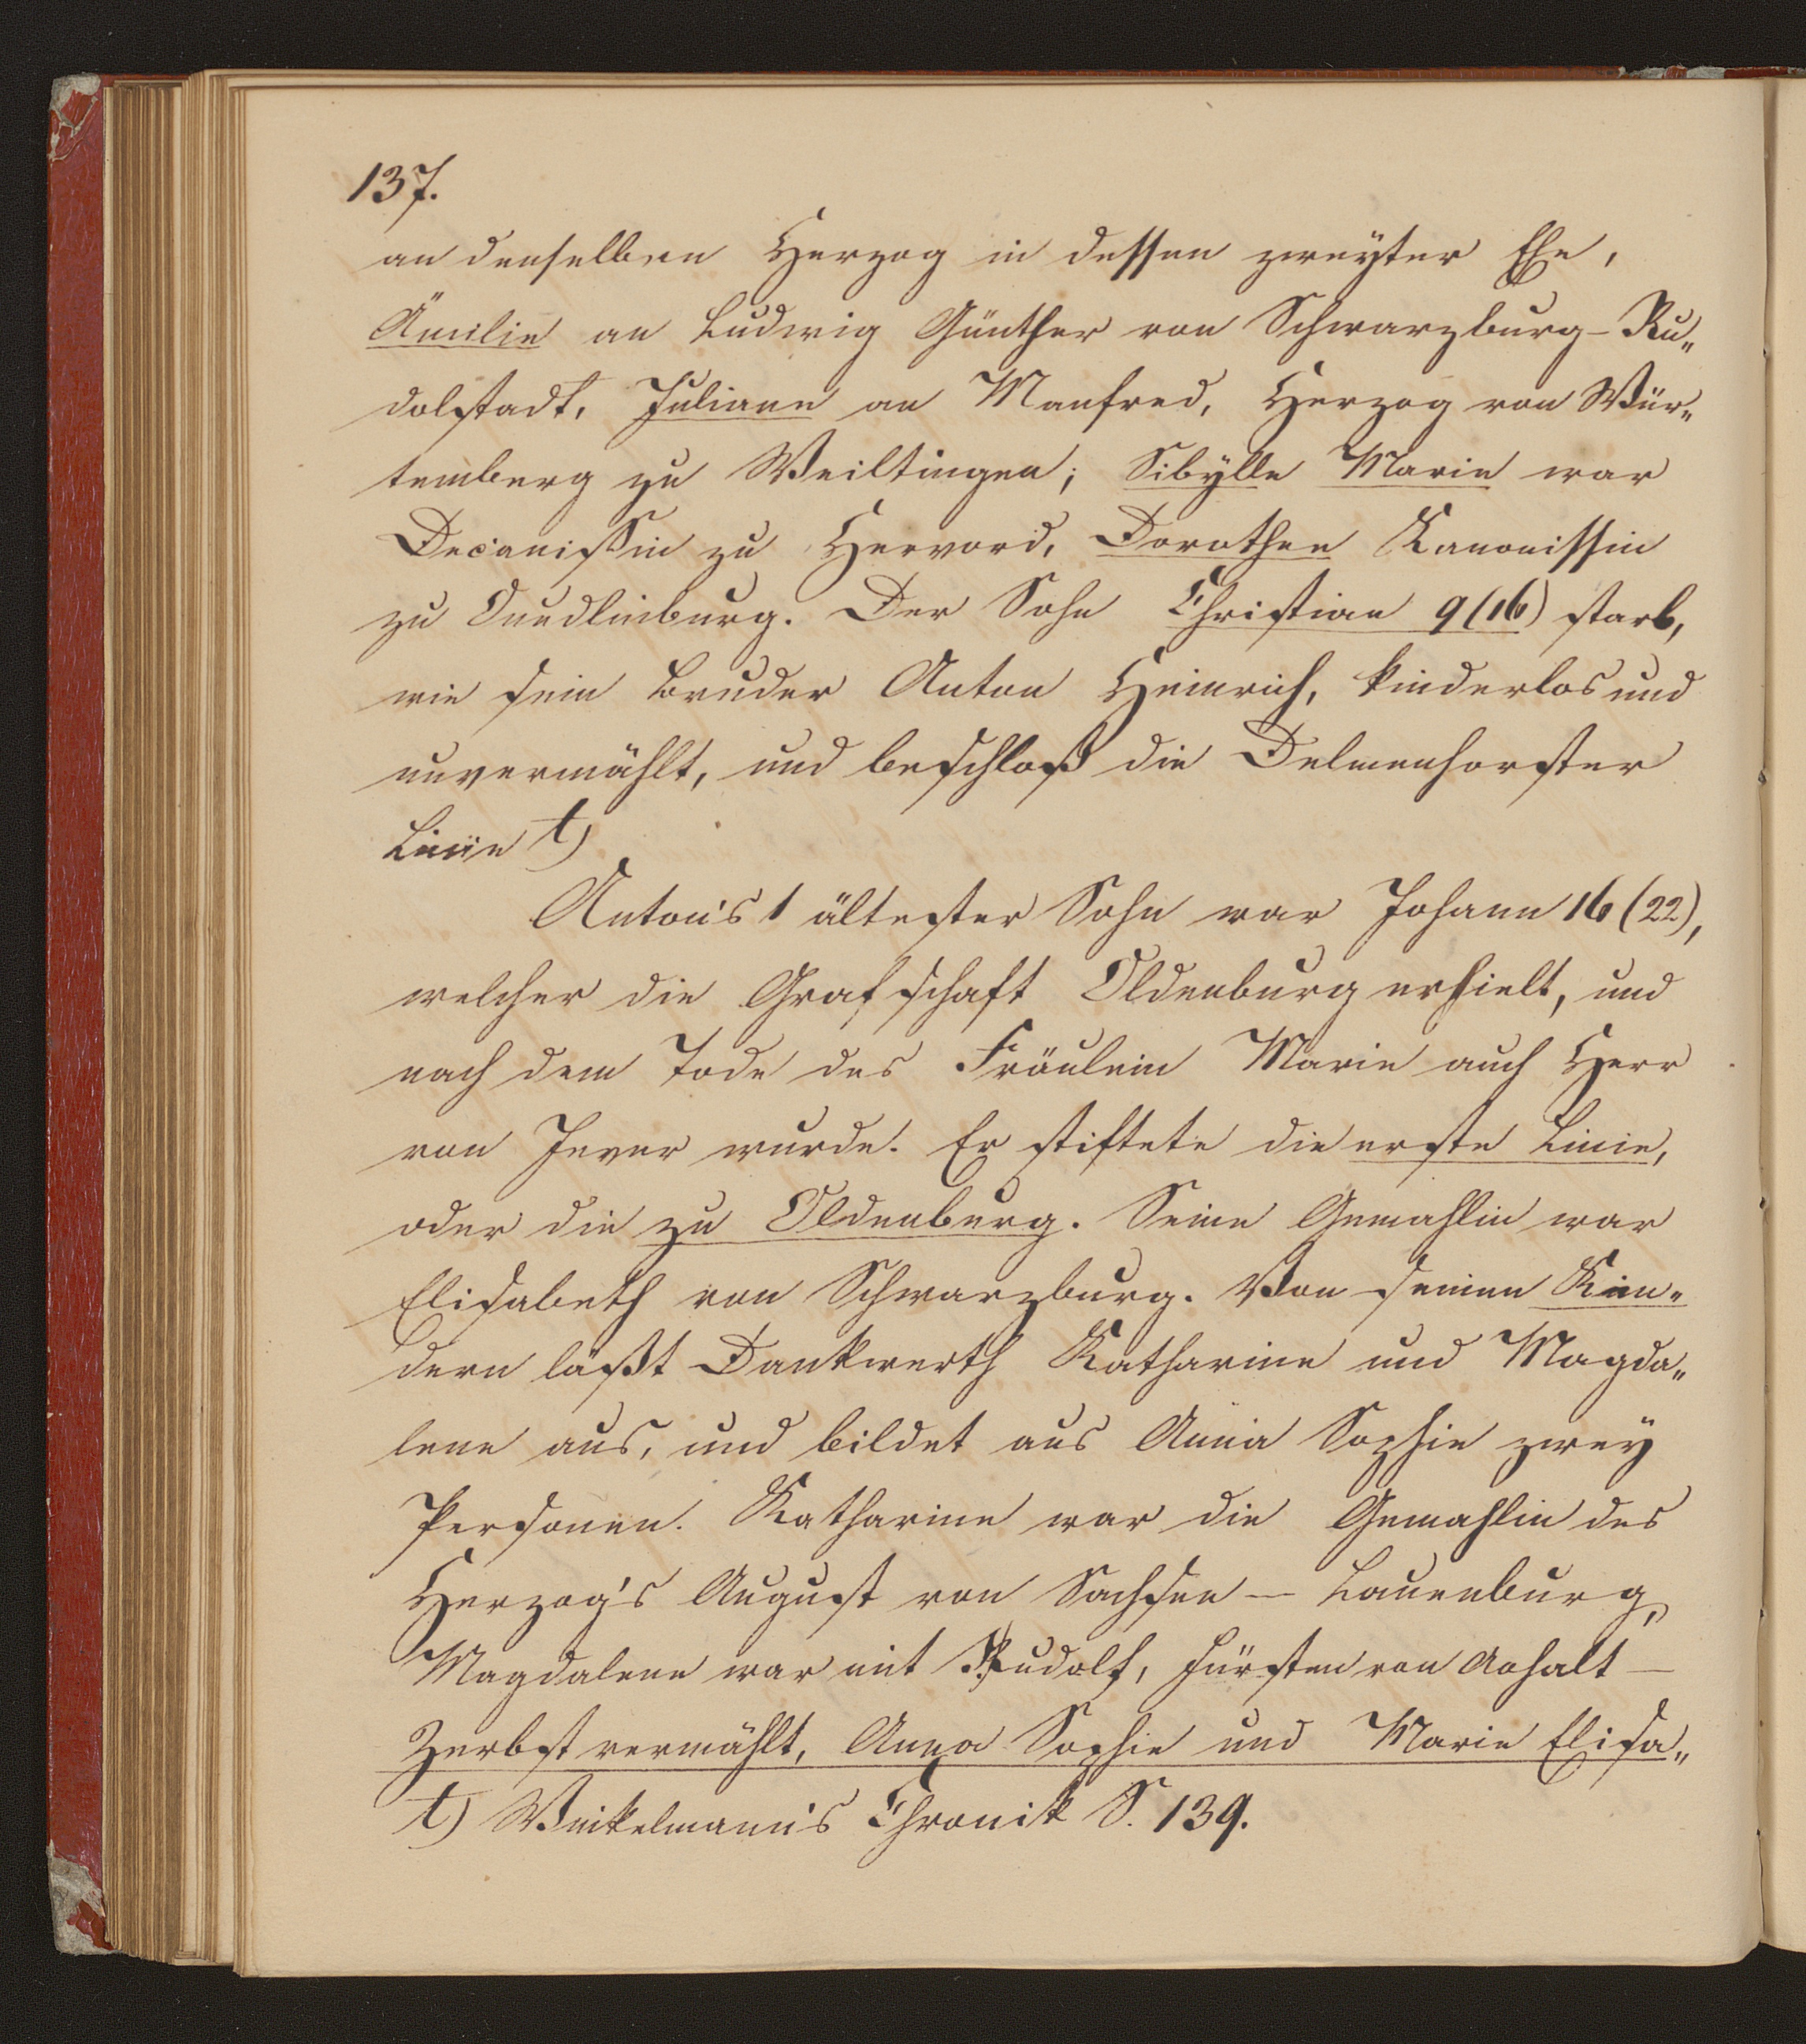 137.
an denselben Herzog in dessen zweyter Ehe,
Ämilie an Ludwig Günther von Schwarzburg-Ru„
dolstadt, Juliane an Manfred, Herzog von Wür„
temberg zu Weiltingen; Sibylle Marie war
Decanissin zu Hervord, Dorothee Kanonissin
zu Quedlinburg. Der Sohn Christian 9 (16) starb,
wie sein Bruder Anton Heinrich, kinderlos und
unvermählt, und beschloß die Delmenhorster
Linie t)
Anton's 1 ältester Sohn war Johann 16 (22),
welcher die Grafschaft Oldenburg erhielt, und
nach dem Tode des Fräulein Marie auch Herr
von Jever wurde. Er stiftete die erste Linie,
oder die zu Oldenburg. Seine Gemahlin war
Elisabeth von Schwarzburg. Von seinen Kin„
dern läßt Dankwerth Katharine und Magda„
lene aus, und bildet aus Anna Sophie zwey
Personen. Katharine war die Gemahlin des
Herzog's August von Sachsen – Lauenburg,
Magdalene war mit Rudolf, Fürsten von Anhalt –
Zerbst vermählt, Anna Sophie und Marie Elisa„
t) Winkelmann's Chronik S. 139.